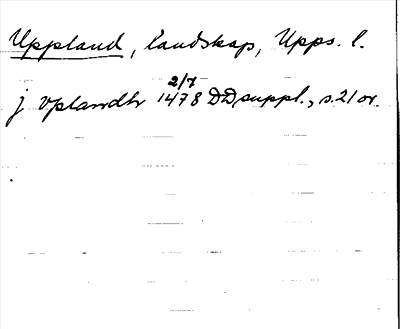 Uppland, landskap, Upps. l.
2/7
j vplandh 1478 DD suppl., s. 21 or.